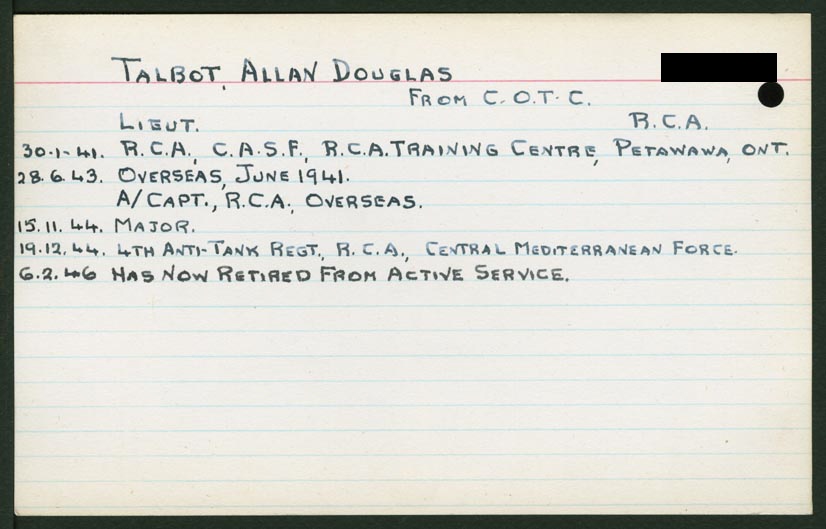 TALBOT, ALLAN DOUGLAS
FROM C.O.T.C.
LIEUT. R.C.A.
30.1.41. R.C.A., C.A.S.F., R.C.A. TRAINING CENTRE, PETAWAWA, ONT.
28.6.43. OVERSEAS, JUNE 1941.
A/CAPT., R.C.A., OVERSEAS.
15.11.44. MAJOR.
19.12.44. 4TH ANTI-TANK REGT., R.C.A., CENTRAL MEDITERRANEAN FORCE.
6.2.46 HAS NOW RETIRED FROM ACTIVE SERVICE.